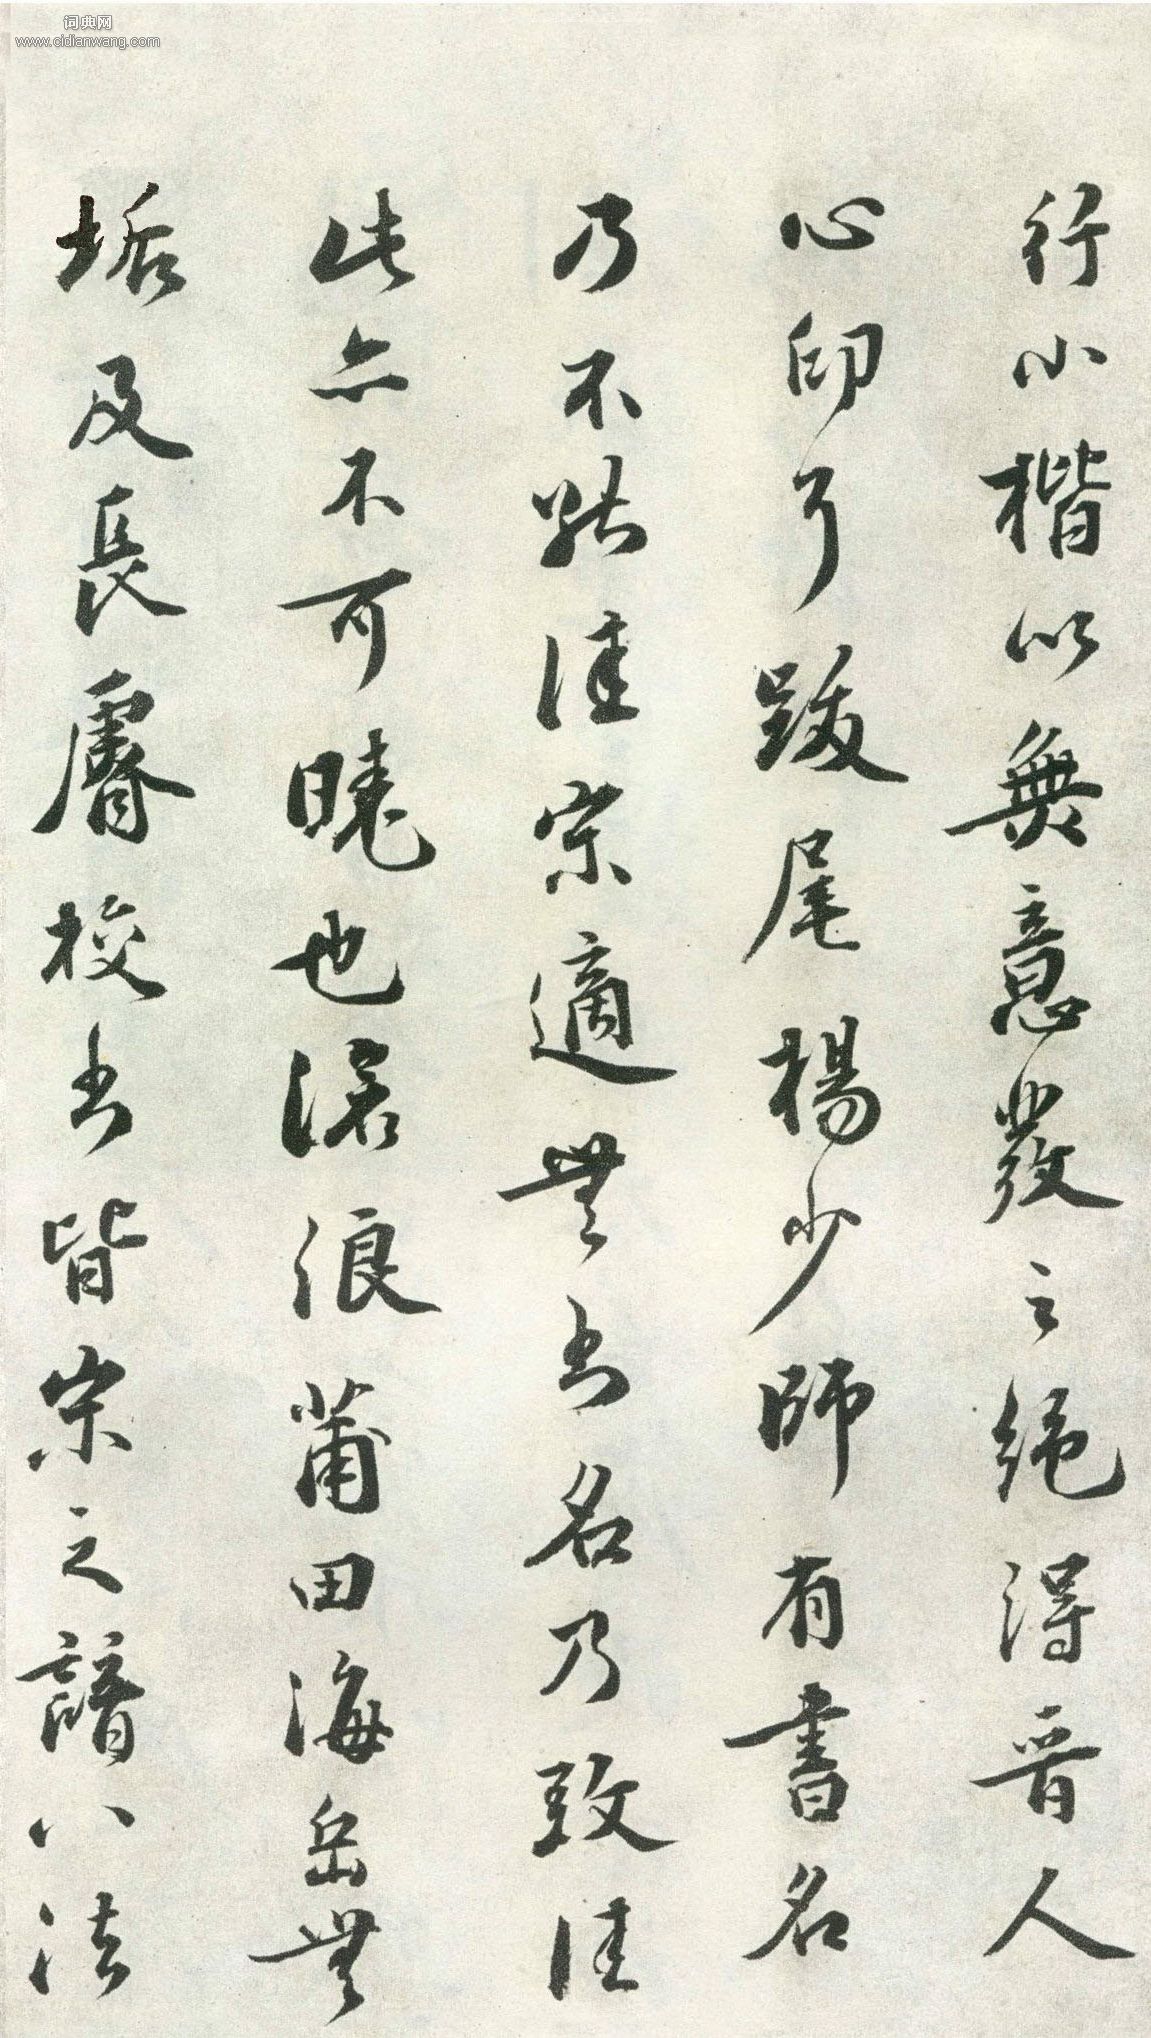 词典网
www.cidianwang.com
行小楷以無意發之絕得晉人
心印了跋尾楊少師有書名
乃不能佳宗適無書名乃致佳
此亦不可曉也滄浪莆田海岳無
垢及長睿校書皆宗之諳八法